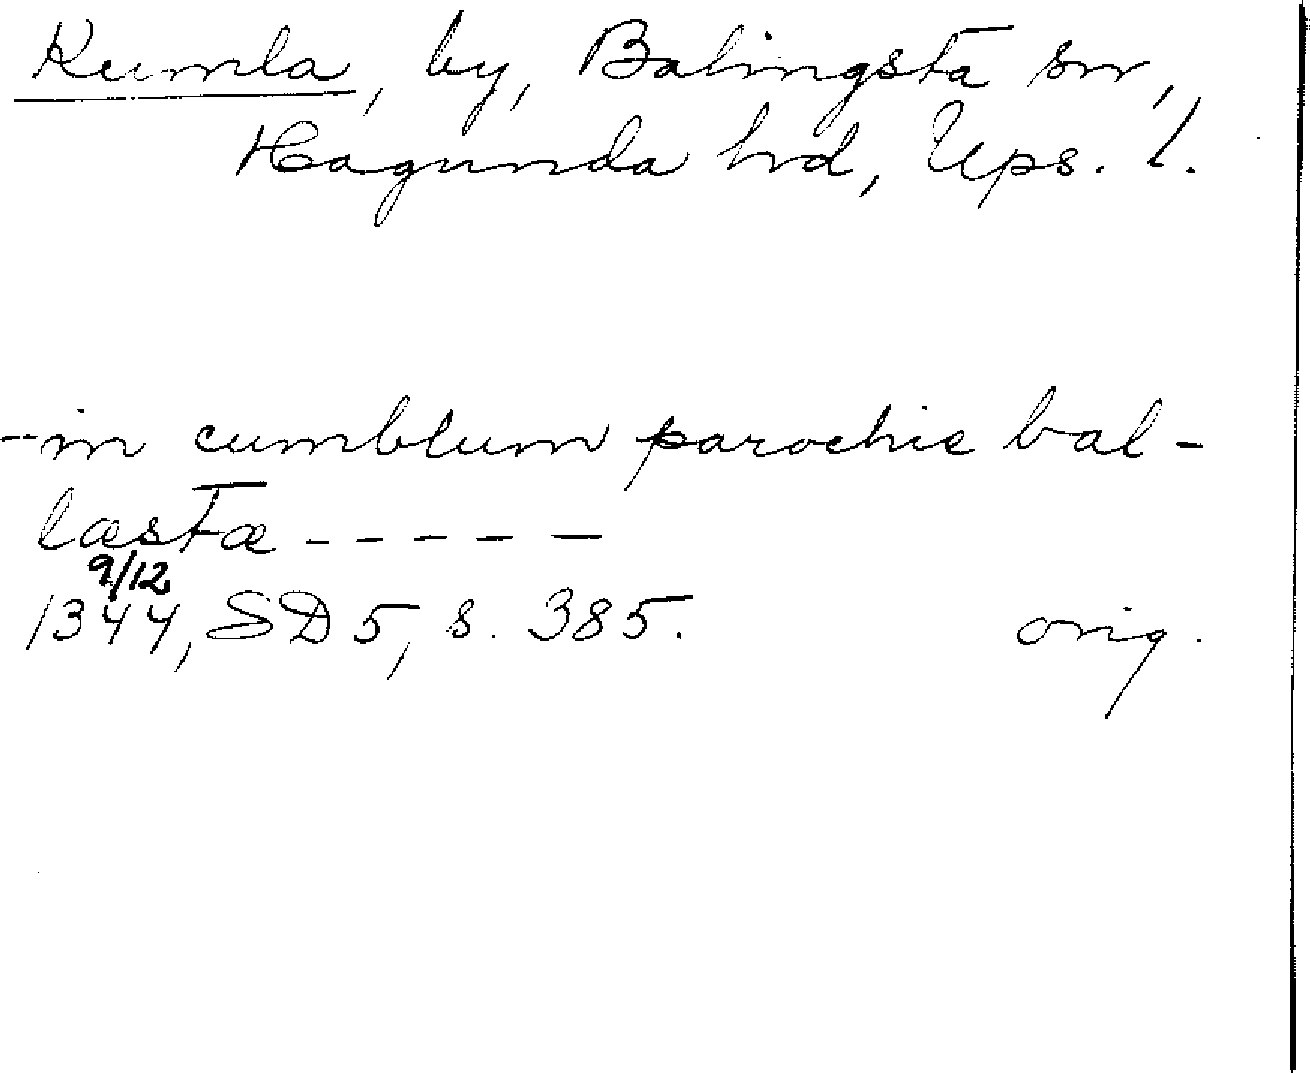 Kumla, by, Balingsta sn,
Hagunda hd, Ups. l.
--in cumblum parochie bal-
læstæ -----
9/12
1344, SD 5, s. 385. orig.